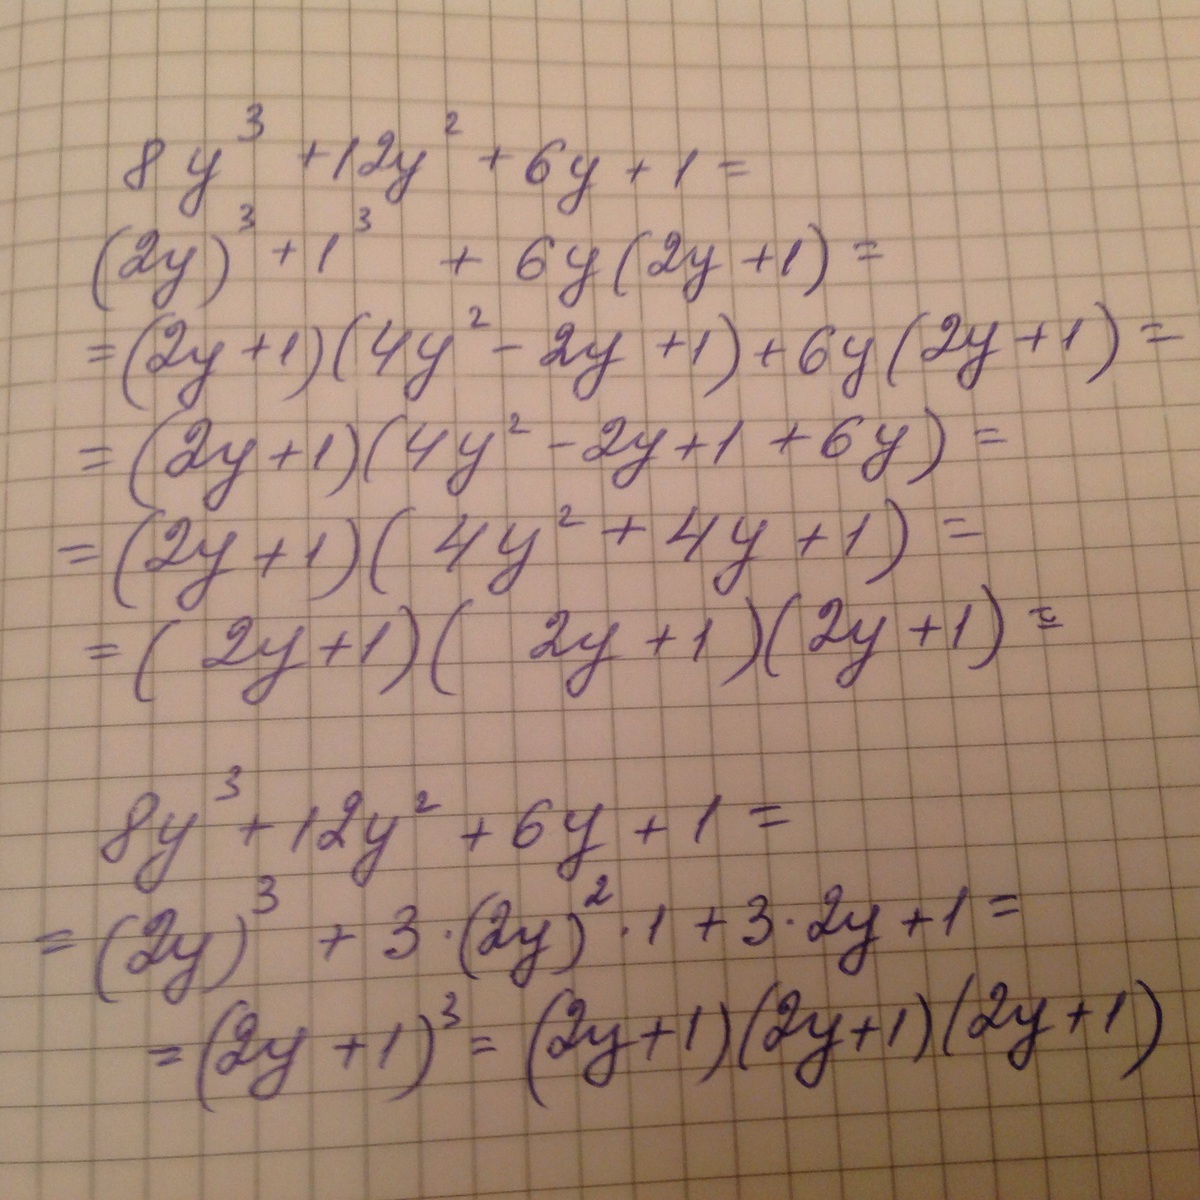 8y³ + 12y² + 6y + 1 =
(2y)³ + 1³ + 6y(2y + 1) =
= (2y + 1)(4y² - 2y + 1) + 6y(2y + 1) =
= (2y + 1)(4y² - 2y + 1 + 6y) =
= (2y + 1)(4y² + 4y + 1) =
= (2y + 1)(2y + 1)(2y + 1) =
8y³ + 12y² + 6y + 1 =
= (2y)³ + 3·(2y)²·1 + 3·2y + 1 =
= (2y + 1)³ = (2y + 1)(2y + 1)(2y + 1)